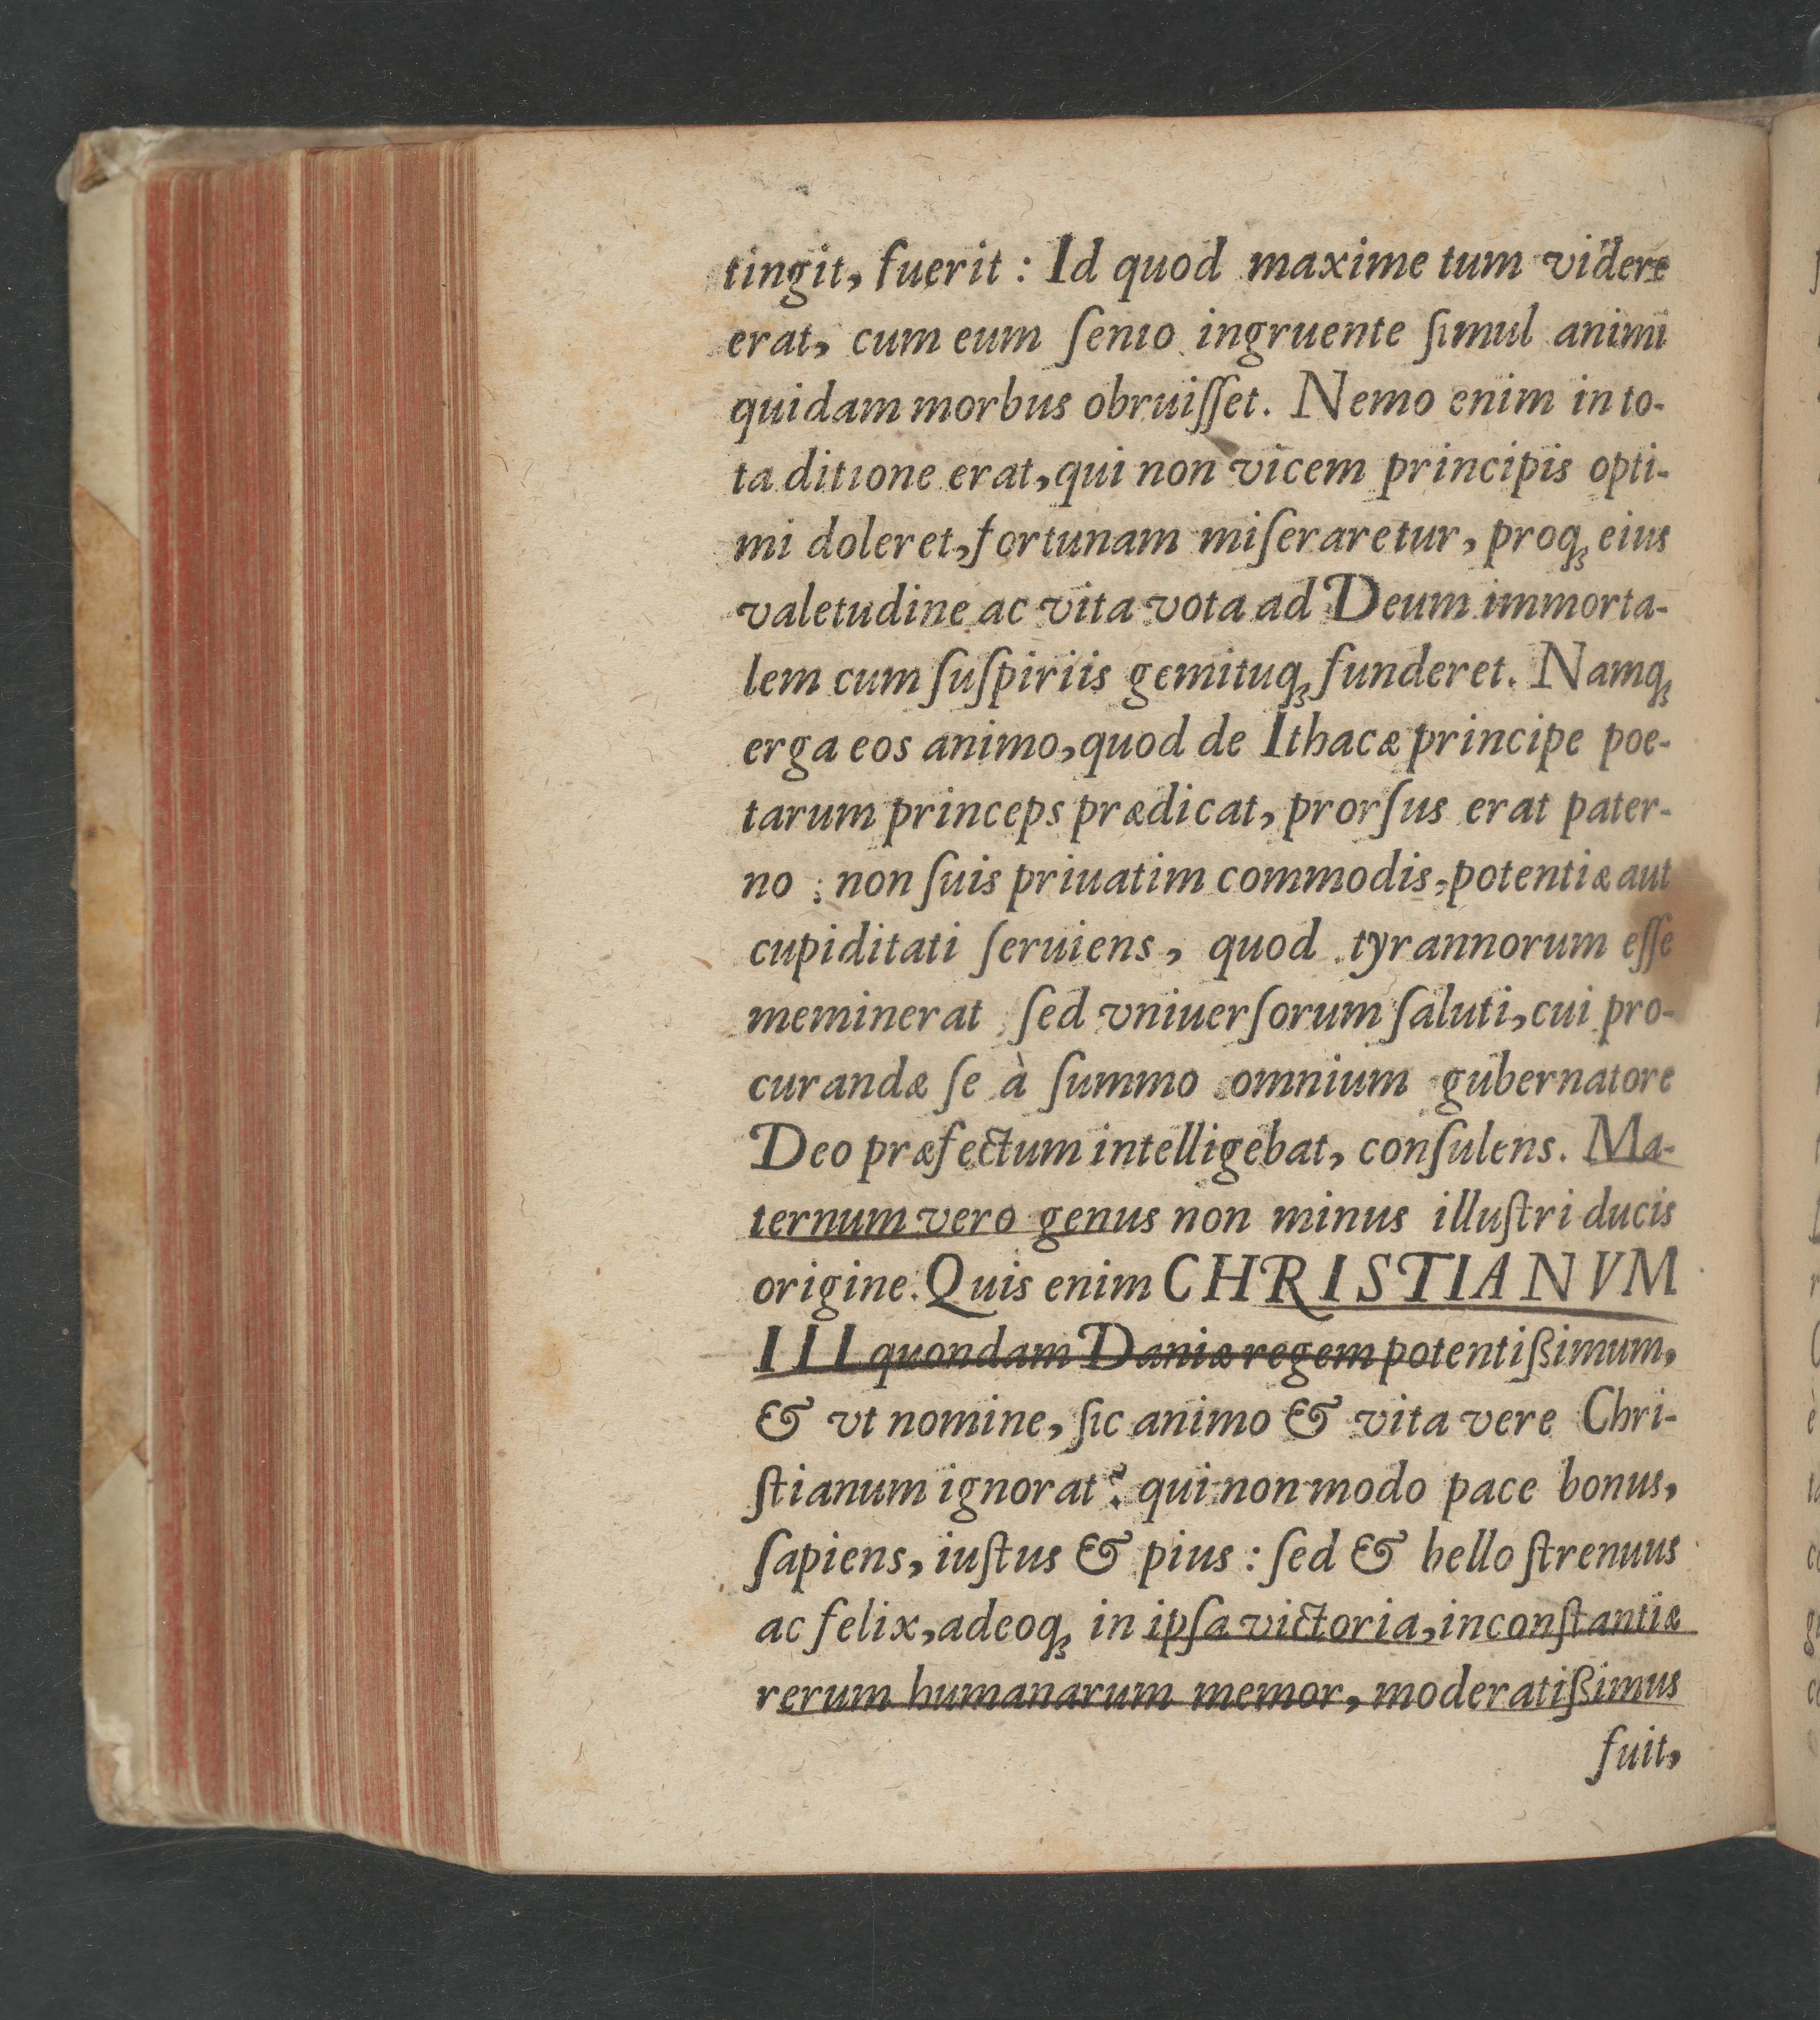 tingit, fuerit : Id quod maxime tum videre
erat, cum eum ſenio ingruente ſimul animi
quidam morbus obruiſſet. Nemo enim in to-
ta ditione erat, qui non vicem principis opti-
mi doleret, fortunam miſeraretur, proq́ꝫ eius
valetudine ac vita vota ad Deum immorta-
lem cum ſuſpiriis gemituqꝫ funderet. Namqꝫ
erga eos animo, quod de Ithacæ principe poe-
tarum princeps prædicat, prorſus erat pater-
no : non ſuis priuatim commodis, potentiæ aut
cupiditati ſeruiens, quod tyrannorum eſſe
meminerat ſed vniuerſorum ſaluti, cui pro-
curandæ ſe à ſummo omnium gubernatore
Deo præfectum intelligebat, conſulens. Ma-
ternum vero genus non minus illuſtri ducis
origine. Quis enim CHRISTIANVM
III quondam Daniæ regem potentißimum,
& vt nomine, ſic animo & vita vere Chri-
ſtianum ignorat? qui non modo pace bonus,
ſapiens, iuſtus & pius : ſed & bello ſtrenuus
ac felix, adeoqꝫ in ipſa victoria, inconſtantiæ
rerum humanarum memor, moderatißimus
fuit,